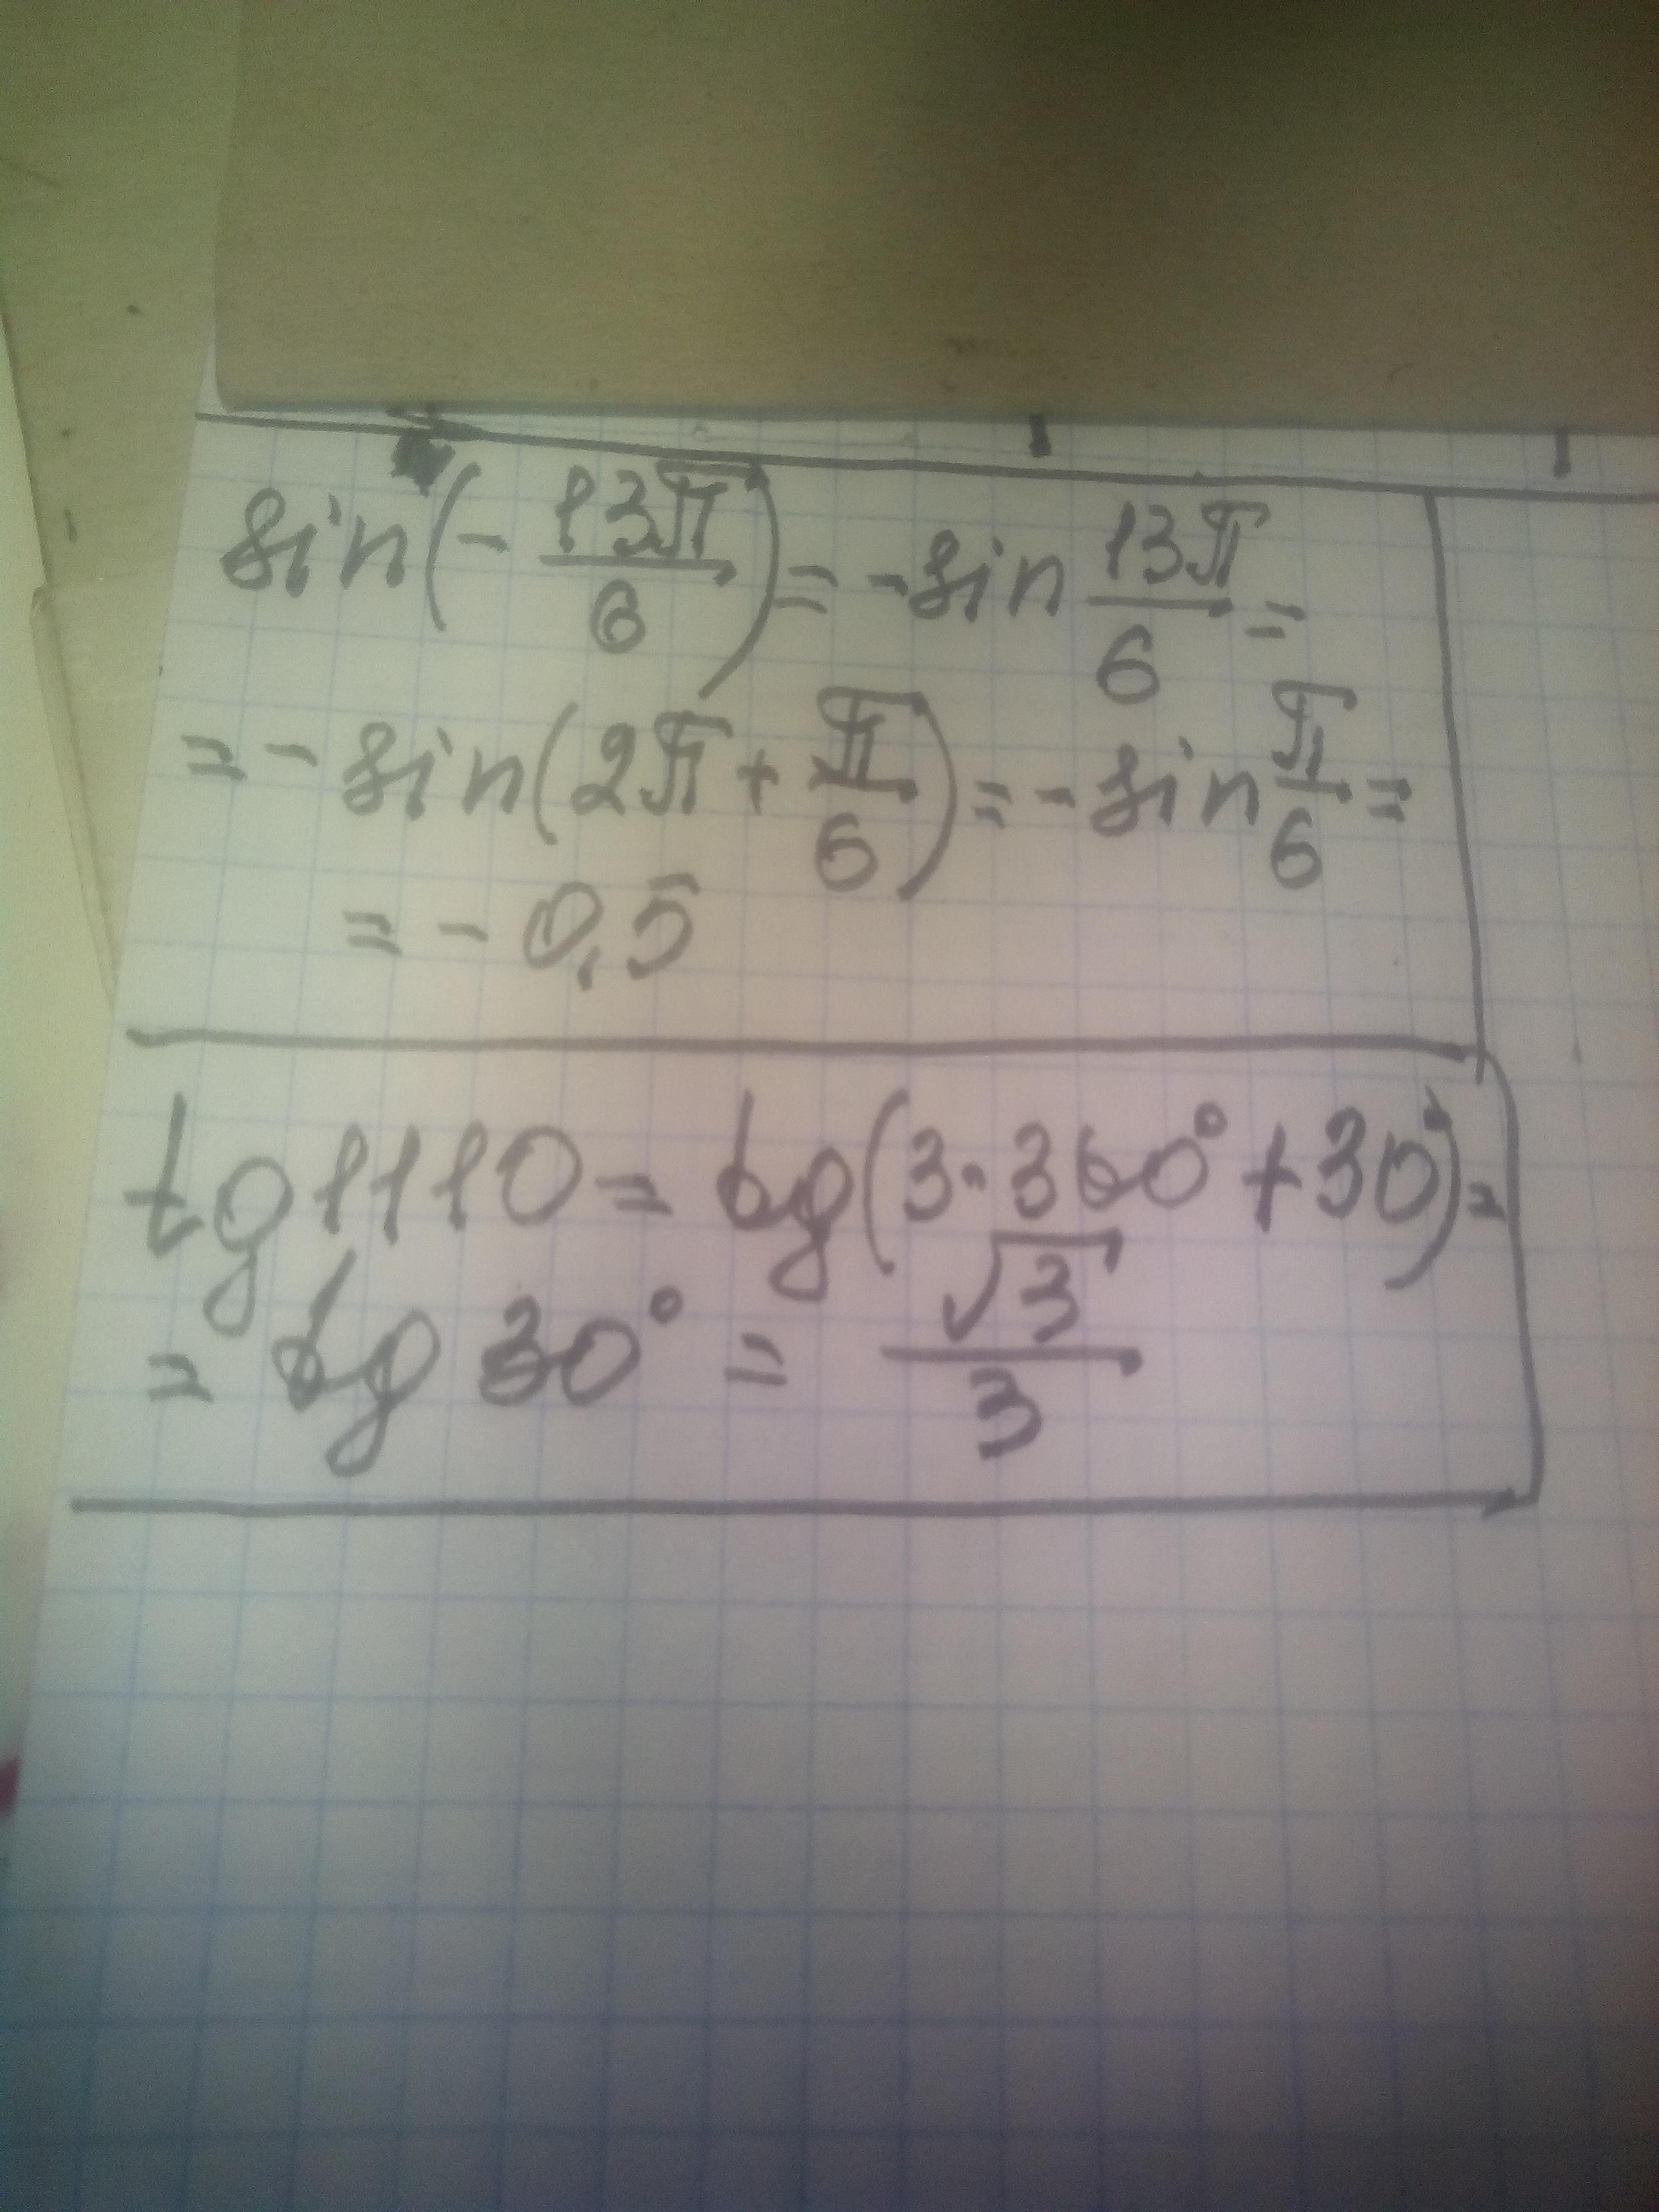 sin(-13π/6) = -sin 13π/6 =
= - sin(2π + π/6) = -sin π/6 =
= - 0,5
tg 1110 = tg(3·360° + 30°) =
= tg 30° = √3/3